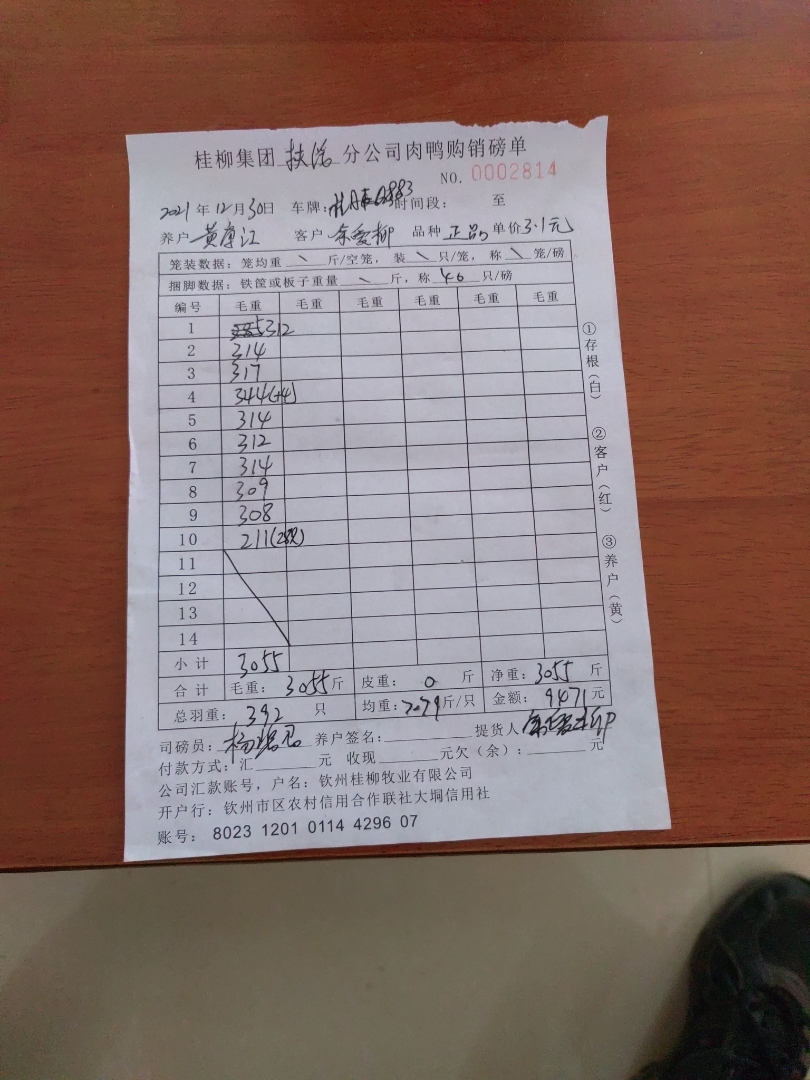 桂柳集团 扶 分公司肉鸭购销磅单
NO. 0002814
2021年12月30日 车牌: 883 时间段: 至
养户 黄 江 客户 余 柳 品种 正品 单价3.1元
笼装数据: 笼均重 \ 斤/空笼, 装 \ 只/笼, 称 \ 笼/磅
捆脚数据: 铁筐或板子重量 \ 斤, 称 46 只/磅
编号 毛重 毛重 毛重 毛重 毛重 毛重
1 312
2 314
3 317
4 344(+4)
5 314
6 312
7 314
8 309
9 308
10 211(28只)
11
12
13
14
小计 3055
合计 毛重: 3055斤 皮重: 0 斤 净重: 3055 斤
总羽重: 392 只 均重: 7.79斤/只 金额: 9471元
司磅员: 杨 养户签名: 提货人
付款方式: 汇 元 收现 元欠(余): 元
公司汇款账号, 户名: 钦州桂柳牧业有限公司
开户行: 钦州市区农村信用合作联社大垌信用社
账号: 8023 1201 0114 4296 07
①存根(白)
②客户(红)
③养户(黄)